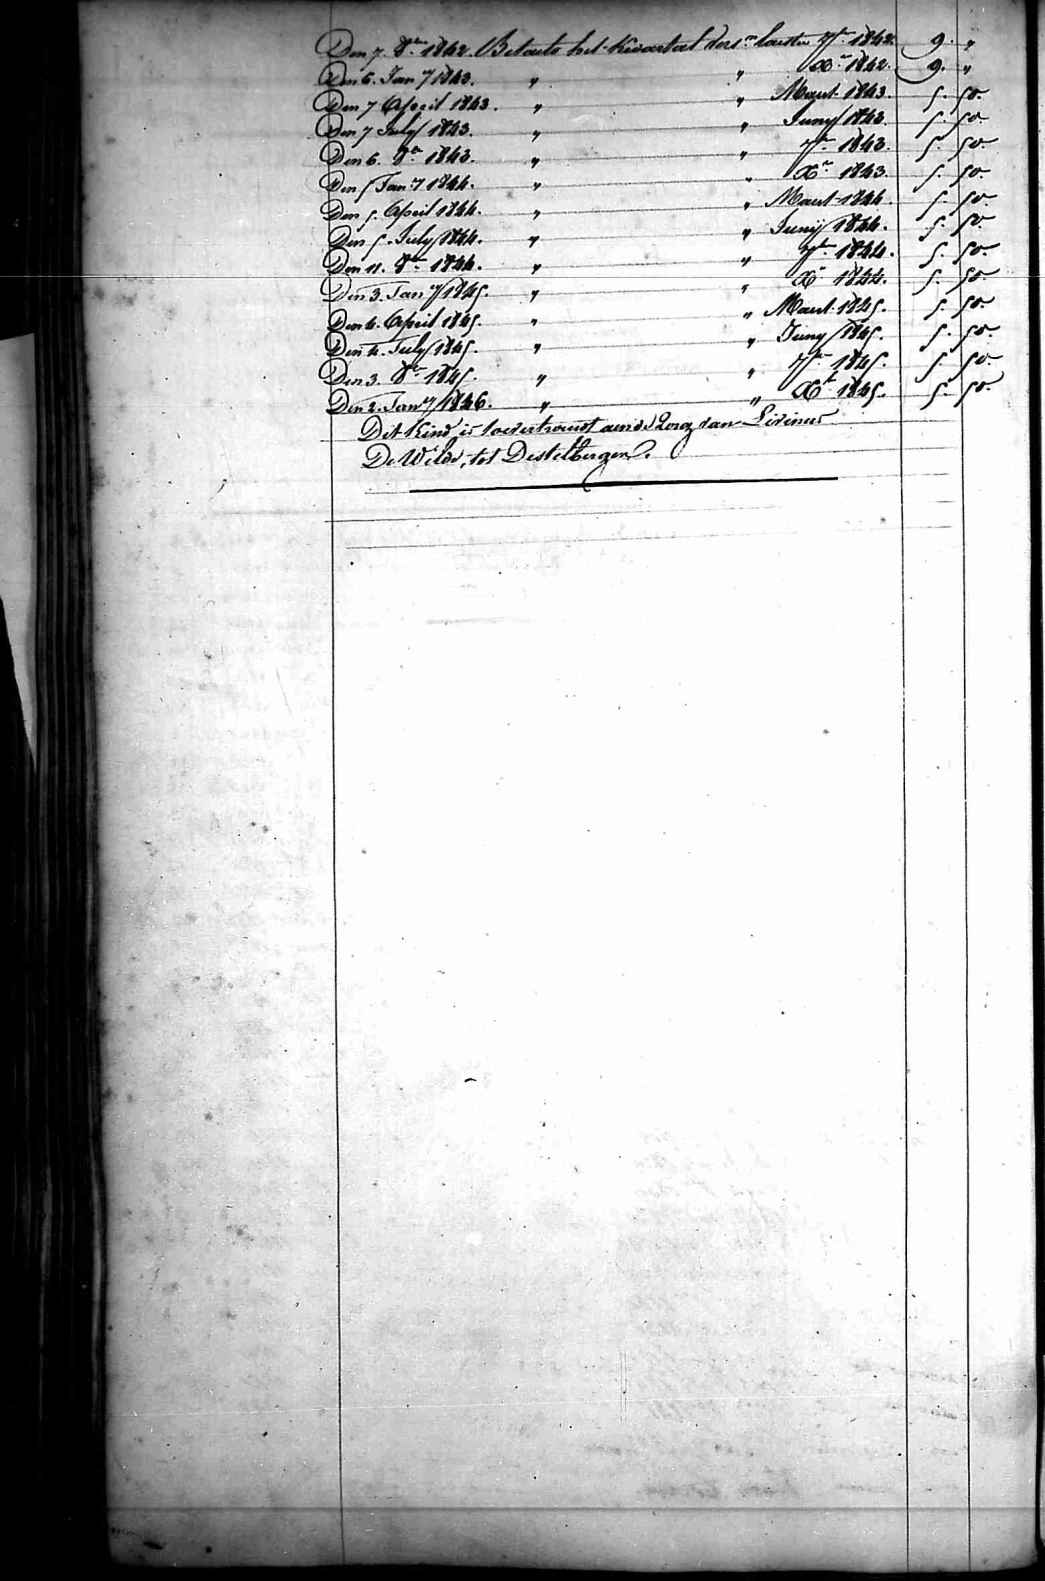 Den 7. 8re 1842. Betaelt het Kwartael vers.n laesten 7bre 1842. 9. "
Den 6. Jany 1843. " " Xre 1842. 9. "
Den 7 April 1843. " " Maert 1843. 5. 50.
Den 7 July 1843. " " Juny 1843. 5. 50.
Den 6. 8re 1843. " " 7bre 1843. 5. 50.
Den 5 Jany 1844. " " Xre 1843. 5. 50.
Den 5. April 1844. " " Maert 1844. 5. 50.
Den 5. July 1844. " " Junij 1844. 5. 50.
Den 11. 8re 1844. " " 7bre 1844. 5. 50.
Den 3. Jany 1845. " " Xre 1844. 5. 50.
Den 4. April 1845. " " Maert 1845. 5. 50.
Den 4. July 1845. " " Juny 1845. 5. 50.
Den 3. 8re 1845. " " 7bre 1845. 5. 50.
Den 2. Jany 1846. " " Xre 1845. 5. 50.
Dit Kind is toevertrouwt aen de Zorg van Livinus
De Wilde, tot Destelbergen.